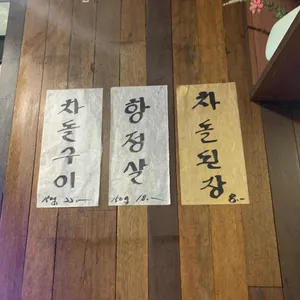 차돌구이
22.—
항정살
150g 18.—
차돌된장
8.-